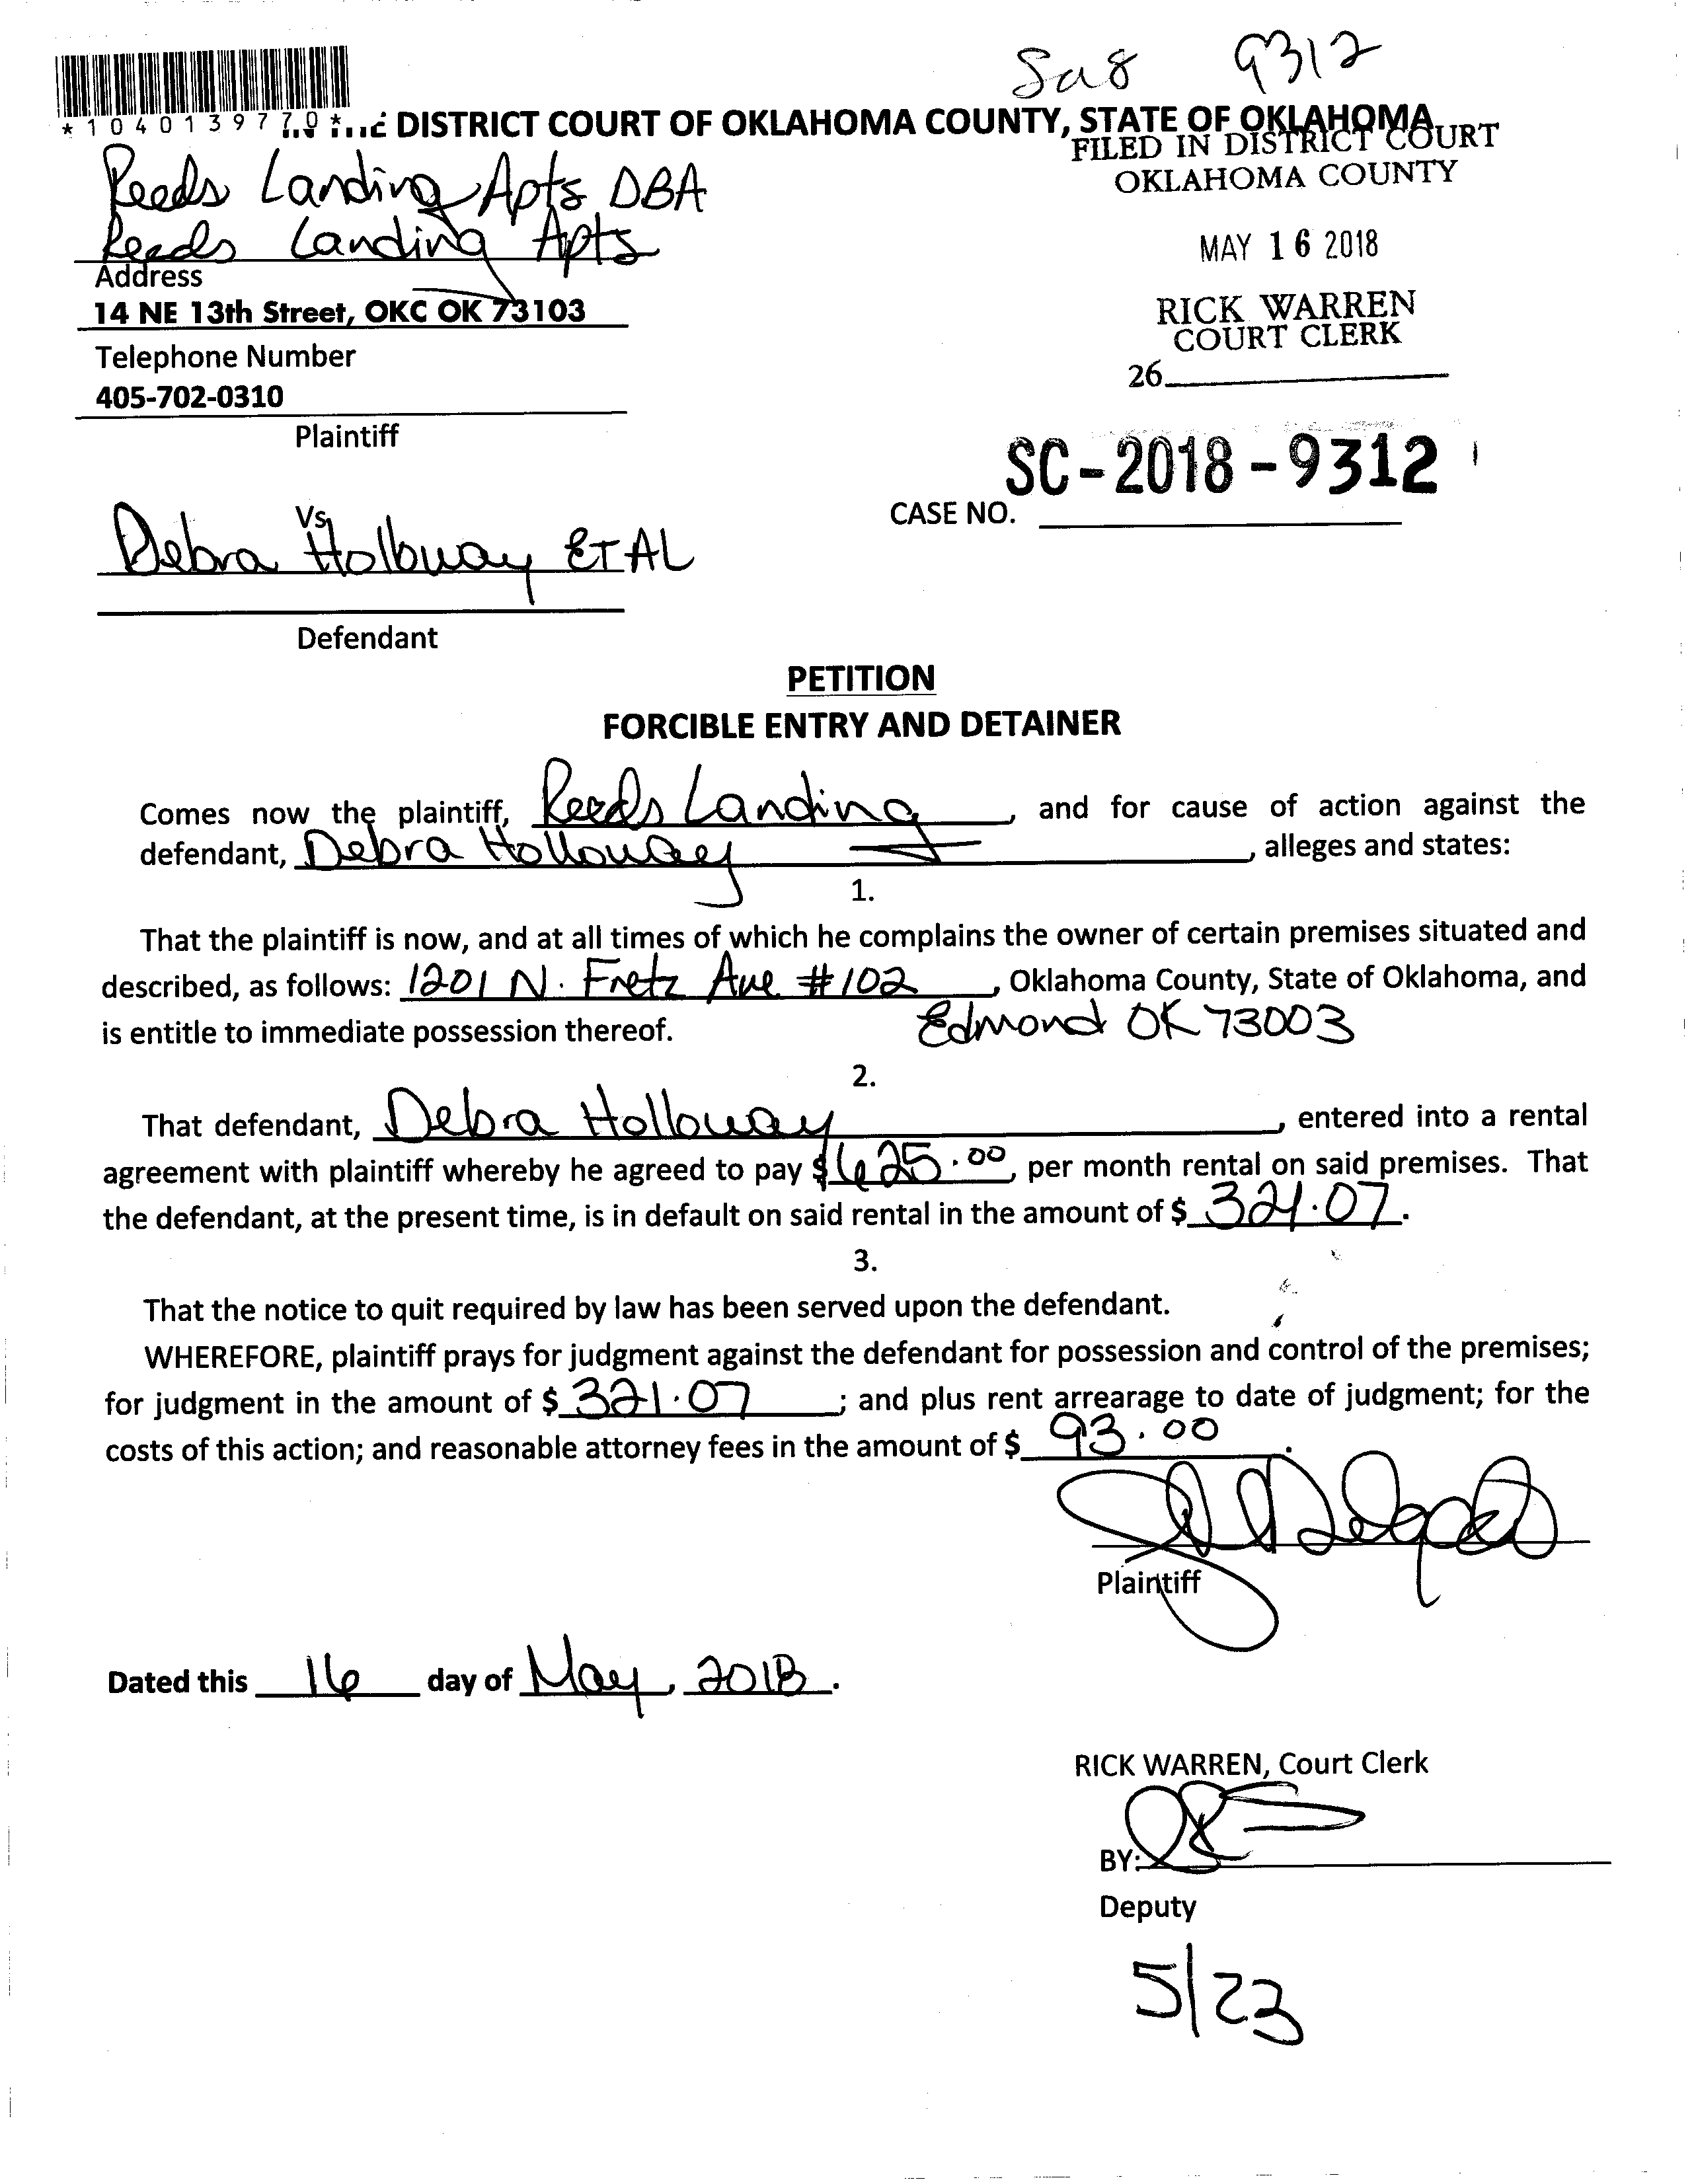 9312
* 1 0 4 0 1 3 9 7 7 0 *
DISTRICT COURT OF OKLAHOMA COUNTY, STATE OF OKLAHOMA
FILED IN DISTRICT COURT
OKLAHOMA COUNTY
Reeds Landing Apts DBA
Reeds Landing Apts
MAY 16 2018
Address
14 NE 13th Street, OKC OK 73103
RICK WARREN
COURT CLERK
Telephone Number
26
405-702-0310
Plaintiff
SC-2018-9312
CASE NO.
Vs
Debra Holloway ET AL
Defendant
PETITION
FORCIBLE ENTRY AND DETAINER
Comes now the plaintiff, Reeds Landing, and for cause of action against the
defendant, Debra Holloway, alleges and states:
1.
That the plaintiff is now, and at all times of which he complains the owner of certain premises situated and
described, as follows: 1201 N. Fretz Ave #102, Oklahoma County, State of Oklahoma, and
is entitle to immediate possession thereof. Edmond OK 73003
2.
That defendant, Debra Holloway, entered into a rental
agreement with plaintiff whereby he agreed to pay $625.00, per month rental on said premises. That
the defendant, at the present time, is in default on said rental in the amount of $ 321.07.
3.
That the notice to quit required by law has been served upon the defendant.
WHEREFORE, plaintiff prays for judgment against the defendant for possession and control of the premises;
for judgment in the amount of $ 321.07; and plus rent arrearage to date of judgment; for the
costs of this action; and reasonable attorney fees in the amount of $ 93.00.
Plaintiff
Dated this 16 day of May, 2018.
RICK WARREN, Court Clerk
BY:
Deputy
5/23